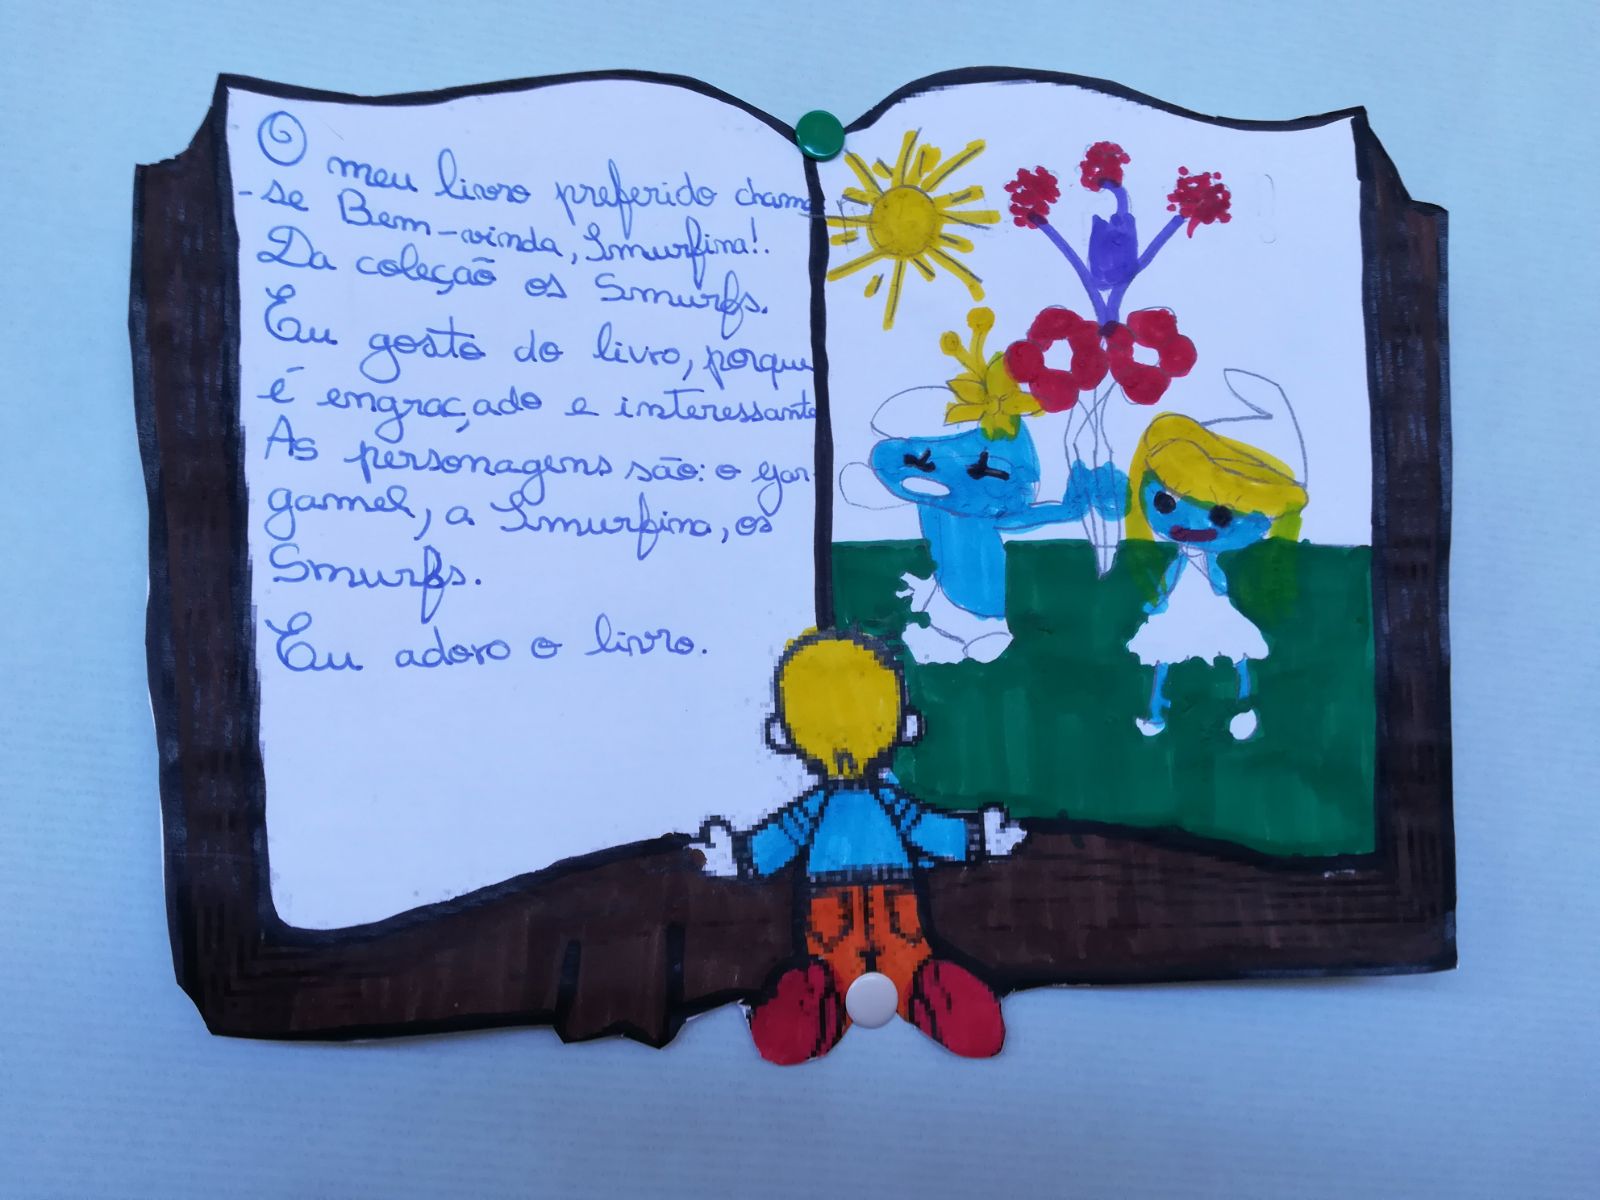 O meu livro preferido chama
-se Bem-vinda, Smurfina!.
Da coleção os Smurfs.
Eu gosto do livro, porque
é engraçado e interessante
As personagens são: o gar-
gamel, a Smurfina, os
Smurfs.
Eu adoro o livro.